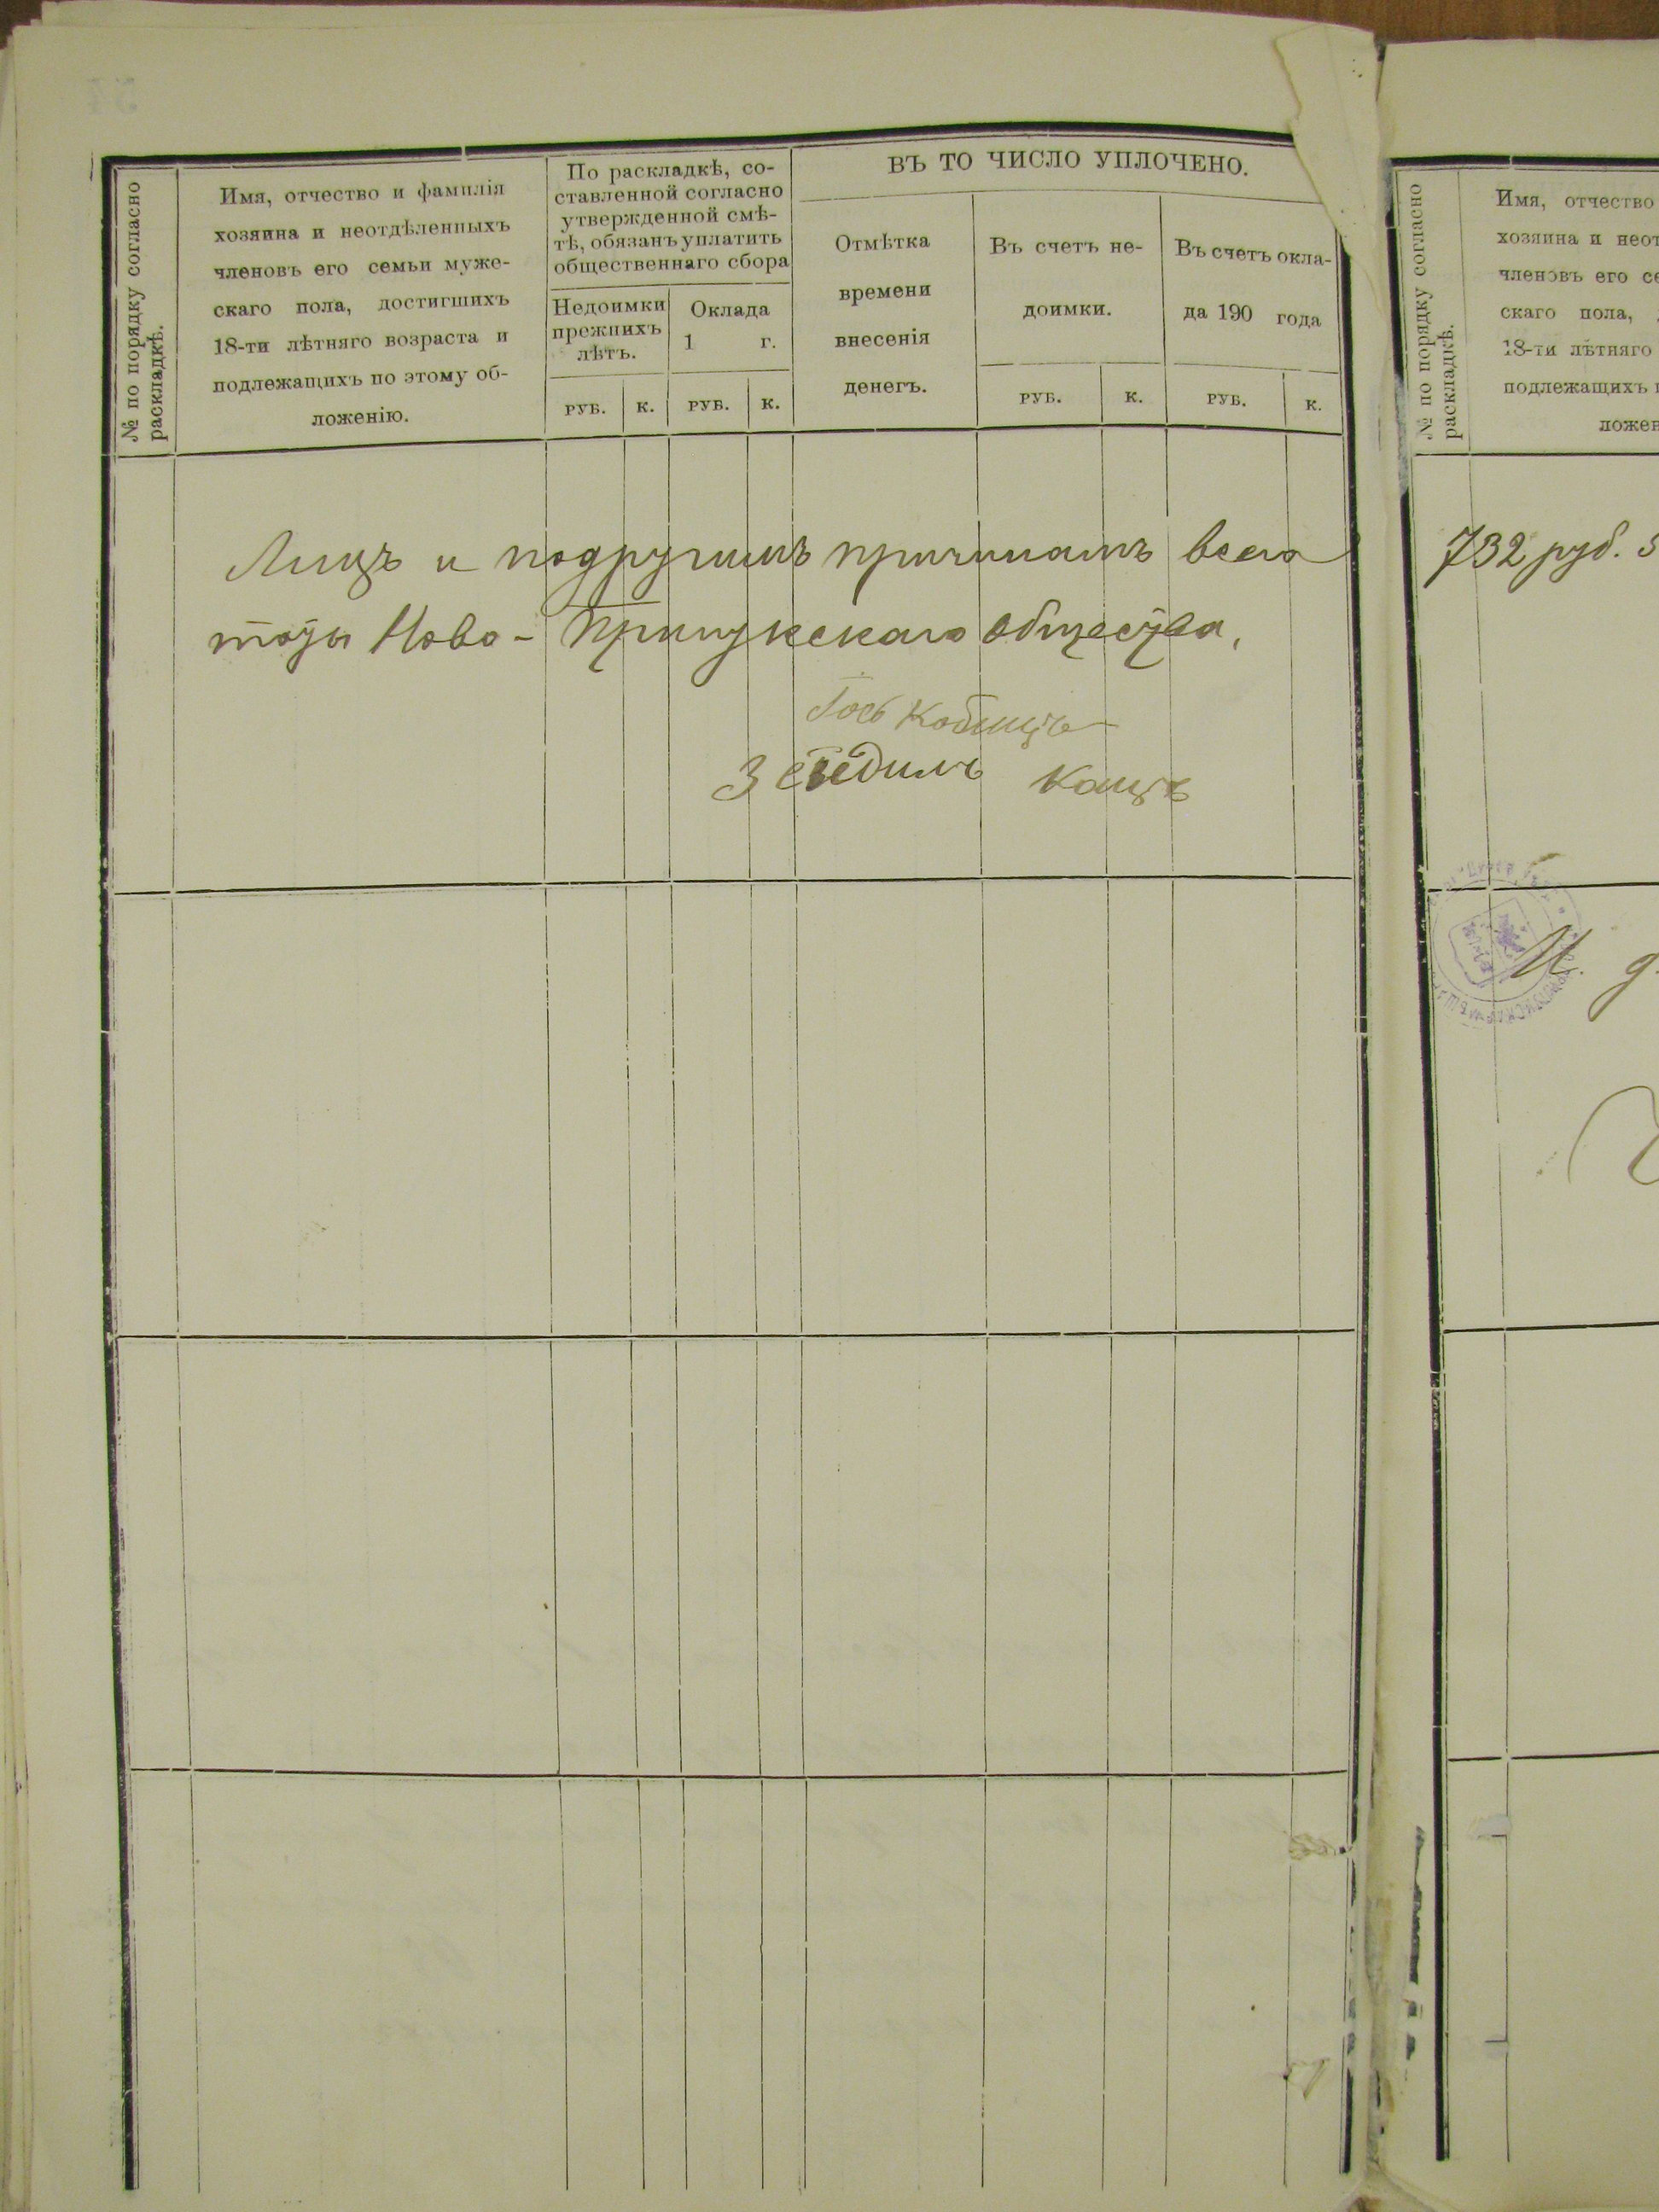 № по порядку согласно
раскладкѣ.
Имя, отчество и фамилія
хозяина и неотдѣленныхъ
членовъ его семьи муже-
скаго пола, достигшихъ
18-ти лѣтняго возраста и
подлежащихъ по этому об-
ложенію.
По раскладкѣ, со-
ставленной согласно
утвержденной смѣ-
тѣ, обязанъ уплатить
общественнаго сбора
Недоимки
прежнихъ
лѣтъ.
Оклада
1 г.
ВЪ ТО ЧИСЛО УПЛОЧЕНО.
Отмѣтка
времени
внесенія
денегъ.
Въ счетъ не-
доимки.
Въ счетъ окла-
да 190 года
РУБ. К. РУБ. К. РУБ. К. РУБ. К.
Лицъ и подругимъ причинамъ всего
Ново-Прилукскаго Общества,
Кацъ
№ по порядку согласно
раскладкѣ.
Имя, отчество
хозяина и неот
членовъ его се
скаго пола,
18-ти лѣтняго
подлежащихъ
ложен
732 руб.
И.